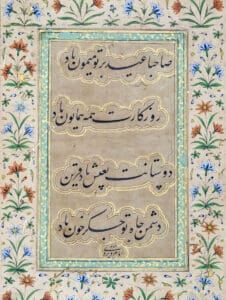 صاحبا عید بر تو میمون باد
روزگارت همه همایون باد
دوستانت بعیش قرین
دشمن جاه تو جگر خون باد